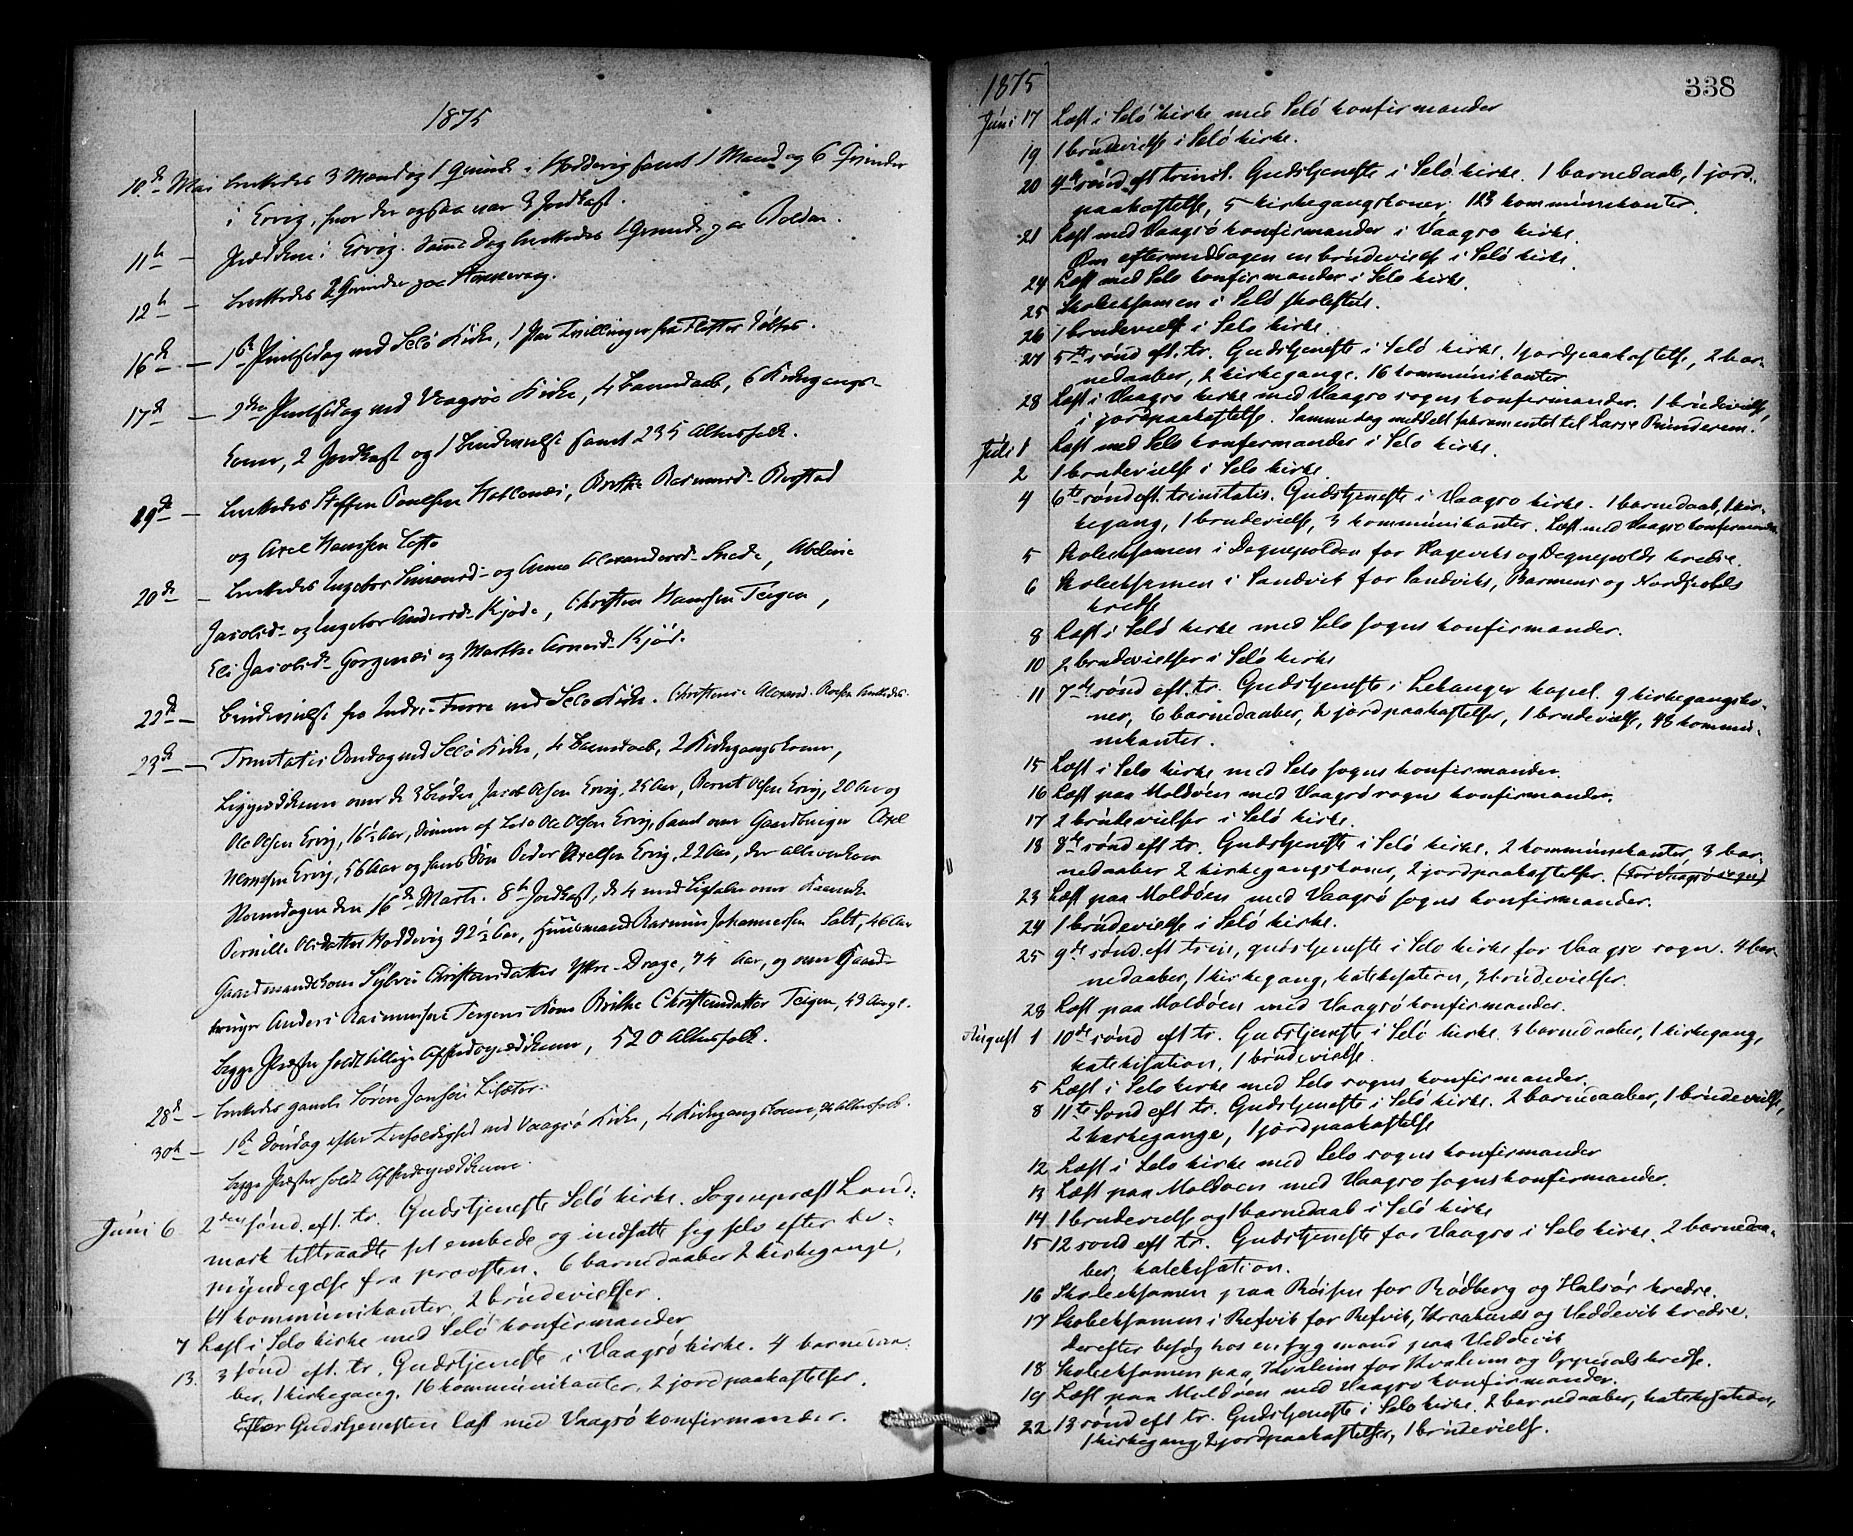 1875
10de Mai berettedes 3 Mænd og 1 Qvinde i Hoddevig samt 1 Mand og 6 Qvinder
i Ervig, hvor der ogsaa var 3 Jordkast.
11te — Prædiken i Ervig. Samme Dag berettedes 1 Qvinde paa
12te — berettedes 2 Qvinder paa
16de — 1ste Pintsedag ved Selø Kirke, 1 Par Tvillinger fra døbtes.
17de — 2den Pintsedag ved Vaagsøe Kirke, 4 Barnedaab, 6 Kirkegangs-
koner, 2 Jordkast og 1 Brudevielse samt 235 Altersfolk.
19de — berettedes Steffen Paulsen Brithe Rasmusd.
og Axel Hanssen
20de — berettedes Ingebor Simonsd. og Anna Alexandersd. Abeline
Jacobsd. og Ingebor Andersd. Kjøde, Christen Hanssen Teigen,
Eli Jacobsd. og Marthe Arnesd. Kjøde.
22de — Brudevielse fra Indre-Furre ved Selø Kirke. Christense Alexand. berettedes.
23de — Trinitatis Søndag ved Selø Kirke, 4 Barnedaab, 2 Kirkegangskoner,
Ligprædikener over de 3 Brødre Jacob Olsen Ervig, 25 Aar, Bernt Olsen Ervig, 20 Aar og
Ole Olsen Ervig, 16½ Aar, Sønner af Ole Olsen Ervig, samt over Gaardbruger Axel
Ervig, 56 Aar og hans Søn Peder Axelsen Ervig, 22 Aar, der alle omkom
den 16de Marts. 8te Jordkast, de 4 med Ligtaler over
Pernille Olsdatter Hoddevig 92½ Aar, Huusmand Rasmus Johannessen Salt, 46 Aar
Gaardmandskone Christensdatter Ytre-Drage, 74 Aar, og over Gaard-
bruger Anders Rasmussen Teigens Kone Brithe Christensdatter Teigen, 43 Aar gl.
Begge Præster holdt tillige Afskedsprædikener, 520 Altersfolk.
28de — berettedes gamle Søren Jonsen
30te — 1ste Søndag efter Trefoldighed ved Vaagsø Kirke, 4 Kirkegangskoner, Altersfolk.
begge Præster holdt Afskedsprædikener.
Juni 6 2den sønd. eft. tr. Gudstjeneste Selø kirke. Sognepræst Land-
mark tiltraadte sit embede og indsatte sig selv efter be-
myndigelse fra provsten. 6 barnedaaber 2 kirkegange,
64 kommunikanter, 2 brudevielser.
7 Læst i Selø kirke med Selø konfirmander
13. 3 sønd. eft. tr. Gudstjeneste i Vaagsø kirke. 4 barnedaa-
ber, 1 kirkegang. 16 kommunikanter, 2 jordpaakastelser.
Efter Gudstjenesten læst med Vaagsø konfirmander.
338
1875
Juni 17 Læst i Selø kirke med Selø konfirmander
19 1 brudevielse i Selø kirke.
20 4de sønd eft trinit. Gudstjeneste i Selø kirke. 1 barnedaab, 1 jord-
paakastelse, 5 kirkegangskoner. 123 kommunikanter.
21 Læst med Vaagsø konfirmander i Vaagsø kirke.
Om eftermiddagen en brudevielse i Selø kirke.
24 Læst med Selø konfirmander i Selø kirke.
25 Skoleeksamen i Selø skolestue.
26 1 brudevielse i Selø kirke.
27 5te sønd eft. tr. Gudstjeneste i Selø kirke. 1 jordpaakastelse, 2 bar-
nedaaber, 2 kirkegange. 16 kommunikanter.
28 Læst i Vaagsø kirke med Vaagsø sogns konfirmander. 1 brudevielse,
1 jordpaakastelse. Samme dag meddelt sakramentet til Lasse Runderem.
Juli 1 Læst med Selø konfirmander i Selø kirke.
2 1 brudevielse i Selø kirke.
4 6te sønd eft. trinitatis. Gudstjeneste i Vaagsø kirke. 1 barnedaab, 1 kir-
kegang, 1 brudevielse, 3 kommunikanter. Læst med Vaagsø konfirmander
5 Skoleeksamen i Degnepolden for Hageviks og Degnepolds kredse.
6 Skoleeksamen i Sandvik for Sandviks, Barmens og Nordpolds
kredse
8 Læst i Selø kirke med Selø sogns konfirmander.
10 2 brudevielser i Selø kirke
11 7de sønd eft. tr. Gudstjeneste i Lekanger kapel. 9 kirkegangsko-
ner, 6 barnedaaber, 2 jordpaakastelser, 1 brudevielse, 48 kommu-
nikanter.
15 Læst i Selø kirke med Selø sogns konfirmander.
16 Læst paa Moldøen med Vaagsø sogns konfirmander.
17 2 brudevielser i Selø kirke.
18 8de sønd eft tr. Gudstjeneste i Selø kirke. 2 kommunikanter, 3 bar-
nedaaber 2 kirkegangskoner, 2 jordpaakastelser. (for Vaagsø sogn)
23 Læst paa Moldøen med Vaagsø sogns konfirmander.
24 1 brudevielse i Selø kirke.
25 9de sønd. eft trin, gudstjeneste i Selø kirke for Vaagsø sogn. 4 bar-
nedaaber, 1 kirkegang, katekisation, 3 brudevielser.
28 Læst paa Moldøen med Vaagsø konfirmander.
August 1 10de sønd eft tr. Gudstjeneste i Selø kirke. 3 barnedaaber, 1 kirkegang,
katekisation, 1 brudevielse.
5 Læst i Selø kirke med Selø sogns konfirmander.
8 11te Sønd eft tr. Gudstjeneste i Selø kirke. 2 barnedaaber, 1 brudevielse,
2 kirkegange, 1 jordpaakastelse
12 Læst i Selø kirke med Selø sogns konfirmander
13 Læst paa Moldøen med Vaagsø sogns konfirmander.
14 1 brudevielse og 1 barnedaab i Selø kirke
15 12 sønd eft tr. Gudstjeneste for Vaagsø i Selø kirke. 2 barnedaa-
ber, katekisation.
16 Skoleeksamen paa Røisen for Rødberg og Halsør kredse.
17 Skoleeksamen i Refvik for Refvik, Kraakenes og Veddevik kredse.
derefter besøg hos en syg mand paa Veddevik
18 Skoleeksamen paa Kvalem for Kvalem og Oppedals kredse.
19 Læst paa Moldøen med Vaagsø konfirmander.
22 13 sønd eft tr. Gudstjeneste i Selø kirke. 2 barnedaaber, katekisation,
1 kirkegang, 2 jordpaakastelser, 1 brudevielse.